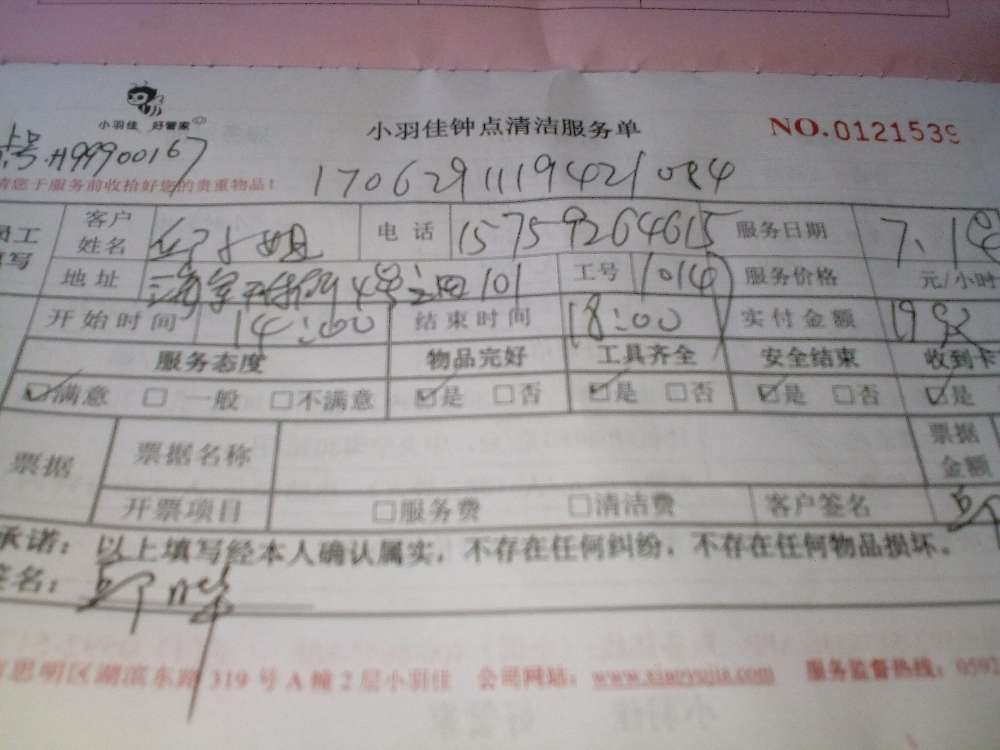 小羽佳 好管家
小羽佳钟点清洁服务单
NO.0121539
卡号:H99900167
请您于服务前收拾好您的贵重物品!
1706291119421084
员工填写
客户姓名 小姐 电话 15759264615 服务日期 7.1
地址 4号之四101 工号 1014 服务价格 元/小时
开始时间 14:00 结束时间 18:00 实付金额 19
服务态度 物品完好 工具齐全 安全结束 收到卡
☑满意 □一般 □不满意 ☑是 □否 ☑是 □否 ☑是 □否 ☑是
票据 票据名称 票据金额
开票项目 □服务费 □清洁费 客户签名
承诺: 以上填写经本人确认属实,不存在任何纠纷,不存在任何物品损坏。
签名:
思明区湖滨东路 319 号 A 幢 2 层小羽佳 公司网站: www.xiaoyujia.com 服务监督热线: 0592